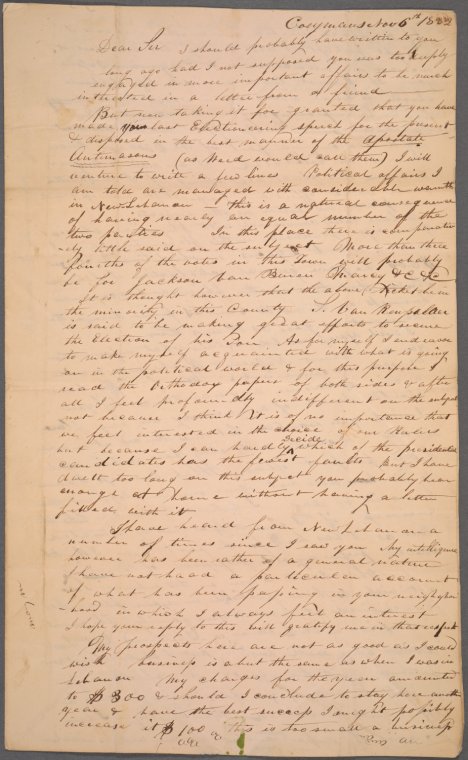 Coeymans Nov 6th 1832
Dear Sir I should probably have written to you
long ago had I not supposed you was too deeply
engaged in more important affairs to be much
interested in a letter from a friend
But now taking it for granted that you have
made your last Electioneering speech for the present
& disposed in the best manner of the apostate
Antimasons (as Weed would call them) I will
venture to write a few lines Political affairs I
am told are managed with considerable warmth
in New Lebanon – this is a natural consequence
of having nearly an equal number of the
two parties In this place there is comparative
ly little said on the subject More than three
fourths of the votes in this Town will probably
be for Jackson Van Buren Marcy & C
It is thought however that the above ticket be in
the minority in this County S. Van Rensselaer
is said to be making great efforts to secure
the Election of his Son As for myself I endeavor
to make myself acquainted with what is going
on in the political world & for this purpose I
read the Orthodox papers of both sides & after
all I feel profoundly indifferent on the subject
not because I think it is of no importance that
we feel interested in the choice of our Rulers
but because I can hardly decide which of the presidential
candidates has the fewest faults But I have
dwelt too long on this subject you probably hear
enough at home without having a letter
filled with it
I have heard from New Lebanon a
number of times since I saw you My intelligence
however has been rather of a general nature
I have not haad a particular account
of what has been passing in your neighbor
-hood in which I always feel an interest
I hope your reply to this will gratify me in that respect
My prospects here are not as good as I could
wish business is about the same as when I was in
Lebanon My charges for the year amounted
to $300 & should I conclude to stay here another
year & have the best success I might possibly
increase it $100 this is too small a business